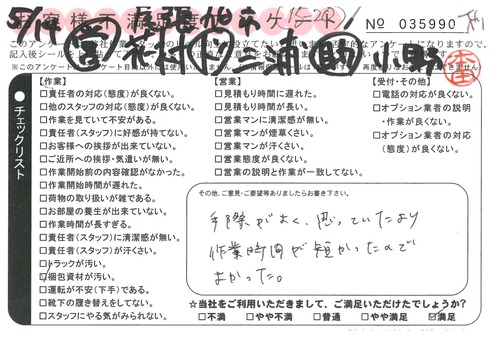 5/19
No 035990
チェックリスト
【作業】
□責任者の対応(態度)が良くない。
□他のスタッフの対応(態度)が良くない。
□作業を見ていて不安がある。
□責任者(スタッフ)に好感が持てない。
□お客様への挨拶が出来ていない。
□ご近所への挨拶・気遣いが無い。
□作業開始前の内容確認がなかった。
□作業開始時間が遅れた。
□荷物の取り扱いが雑である。
□お部屋の養生が出来ていない。
□作業時間が長すぎる。
□責任者(スタッフ)に清潔感が無い。
□責任者(スタッフ)が汗くさい。
□トラックが汚い。
□梱包資材が汚い。
□運転が不安(下手)である。
□靴下の履き替えをしてない。
□スタッフにやる気がみられない。
【営業】
□見積もり時間に遅れた。
□見積もり時間が長い。
□営業マンに清潔感が無い。
□営業マンが煙草くさい。
□営業マンが汗くさい。
□営業態度が良くない。
□営業の説明と作業が一致してない。
【受付・その他】
□電話の対応が良くない。
□オプション業者の説明
・作業が良くない。
□オプション業者の対応
(態度)が良くない。
その他、ご意見・ご要望等ありましたらお書き下さい。
手際がよく、思っていたより
作業時間が短かったので
よかった。
☆当社をご利用いただきまして、ご満足いただけたでしょうか?
□不満 □やや不満 □普通 □やや満足 ☑満足